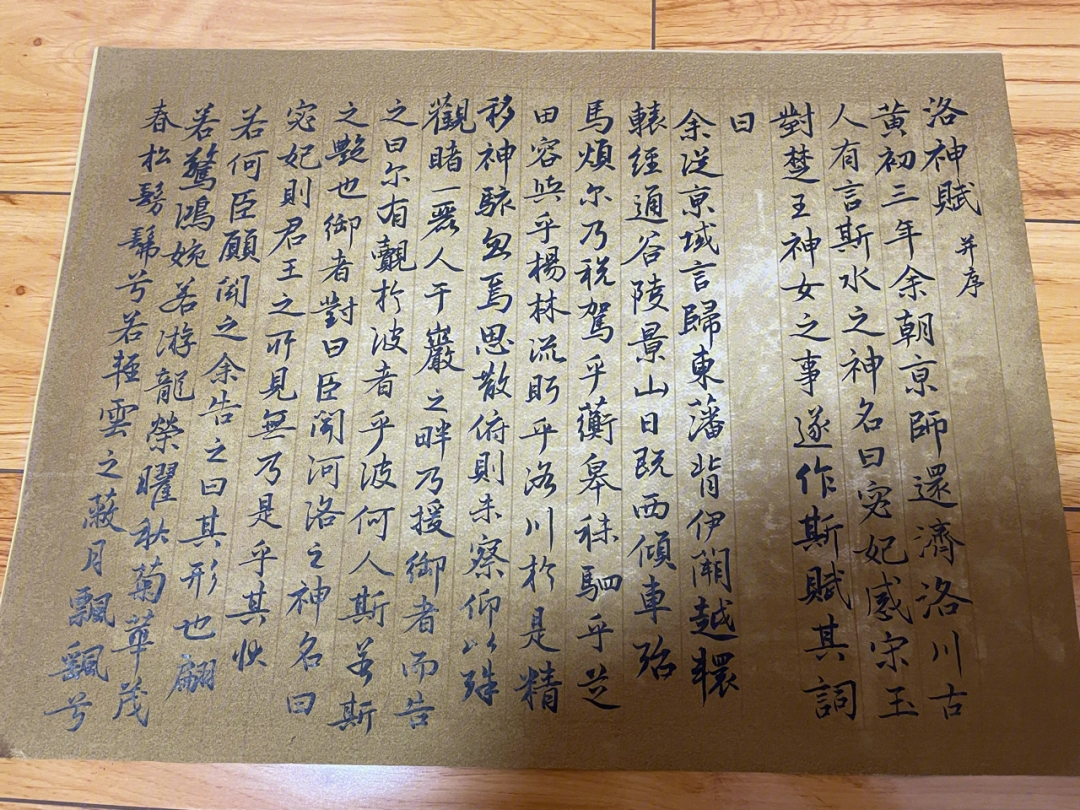 洛神賦 并序
黄初三年余朝京師還濟洛川古
人有言斯水之神名曰宓妃感宋玉
對楚王神女之事遂作斯賦其詞
曰
余従京域言歸東藩背伊闕越轘
轅經通谷陵景山日既西傾車殆
馬煩尔乃税駕乎蘅皋秣駟乎芝
田容與乎楊林流眄乎洛川於是精
移神駭忽焉思散俯則未察仰以殊
觀睹一麗人于巖之畔乃援御者而告
之曰尔有覿於彼者乎彼何人斯若斯
之艶也御者對曰臣聞河洛之神名曰
宓妃則君王之所見無乃是乎其狀
若何臣願聞之余告之曰其形也翩
若驚鴻婉若游龍榮曜秋菊華茂
春松髣髴兮若輕雲之蔽月飄飖兮